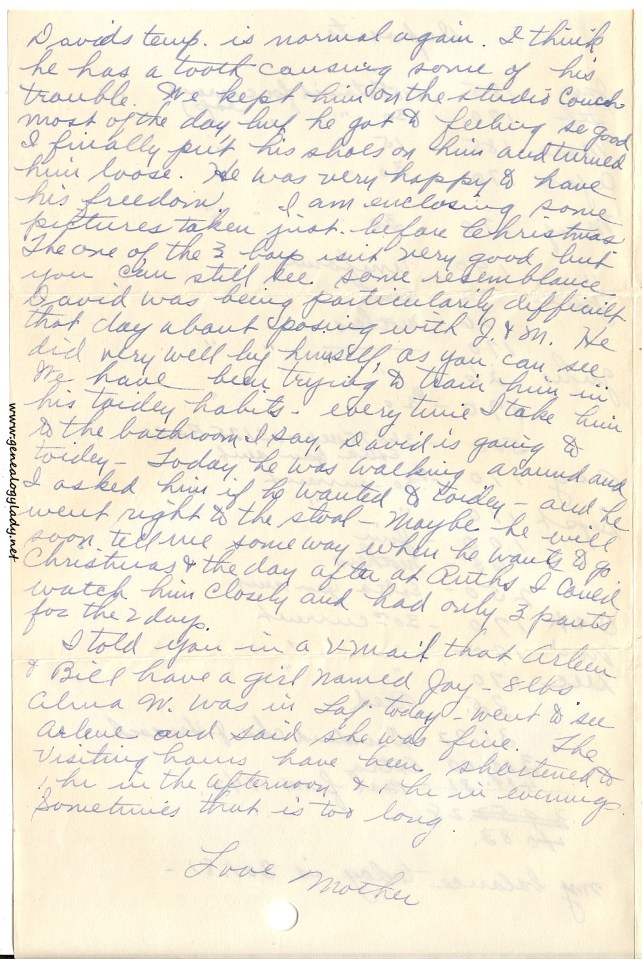 Davids temp. is normal again. I think
he has a tooth causing some of his
trouble. We kept him on the studio couch
most of the day, but he got to feeling so good
I finally put his shoes on him and turned
him loose. He was very happy to have
his freedom. I am enclosing some
pictures taken just before Christmas
The one of the 3 boys isn't very good but
you can still see some resemblance.
David was being particularly difficult
that day about posing with J. & M. He
did very well by himself, as you can see
We have been trying to train him in
his toidey habits - every time I take him
to the bathroom I say, David is going to
toidey - Today he was walking around and
I asked him if he wanted to toidey - and he
went right to the stool - Maybe he will
soon tell me some way when he wants to go
Christmas & the day after at Ruths I could
watch him closely and had only 3 pants
for the 2 days.
I told you in a V-Mail that Arlene
& Bill have a girl named Joy - 8 lbs
Alma W. was in Laf. today - went to see
Arlene and said she was fine. The
visiting hours have been shortened to
1 hr in the afternoon & 1 hr in evenings.
Sometimes that is too long.
Love Mother
www.genealogylady.net